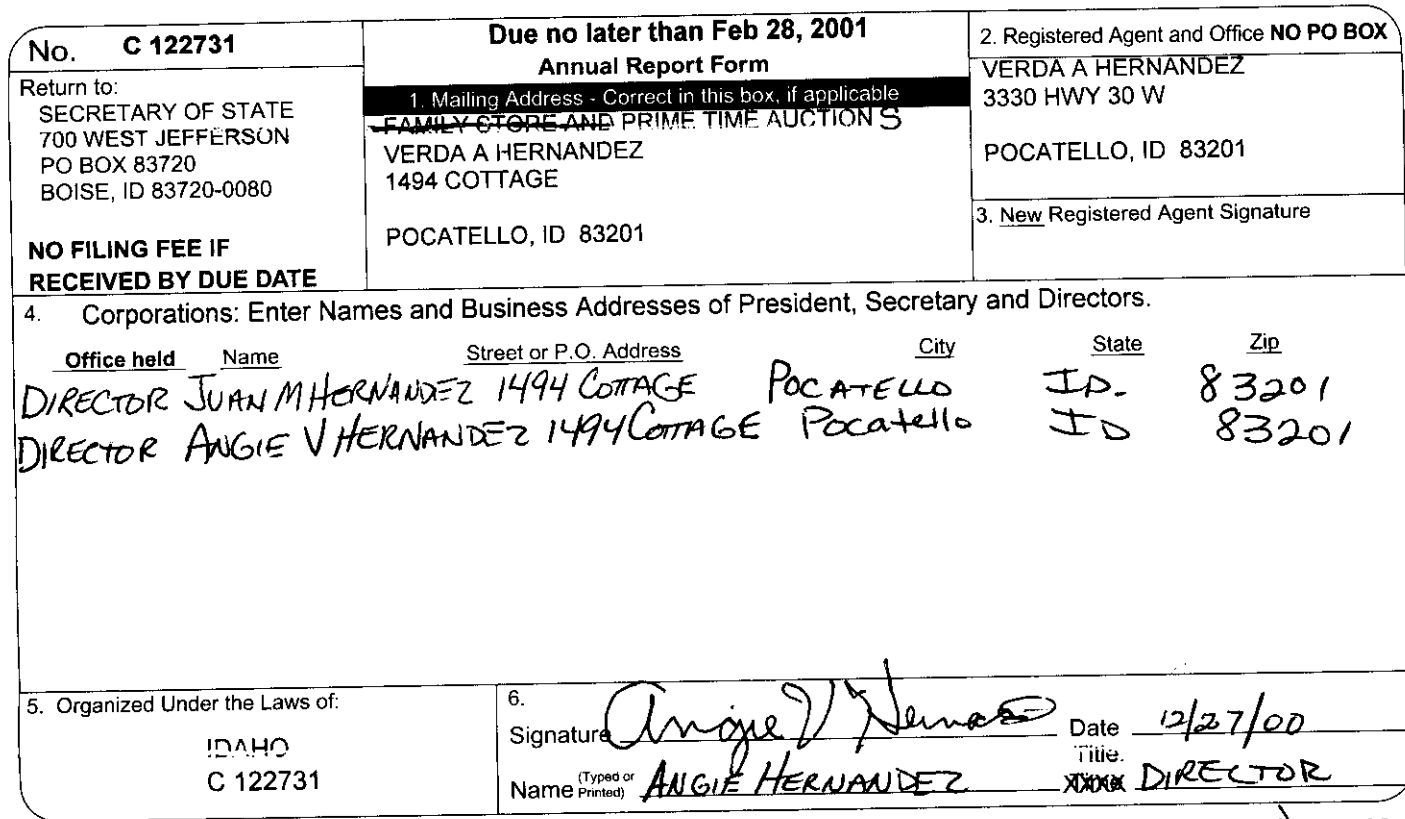 No. C 122731
Return to:
SECRETARY OF STATE
700 WEST JEFFERSON
PO BOX 83720
BOISE, ID 83720-0080
NO FILING FEE IF
RECEIVED BY DUE DATE
Due no later than Feb 28, 2001
Annual Report Form
1. Mailing Address - Correct in this box, if applicable
FAMILY STORE AND PRIME TIME AUCTION S
VERDA A HERNANDEZ
1494 COTTAGE
POCATELLO, ID 83201
2. Registered Agent and Office NO PO BOX
VERDA A HERNANDEZ
3330 HWY 30 W
POCATELLO, ID 83201
3. New Registered Agent Signature
4. Corporations: Enter Names and Business Addresses of President, Secretary and Directors.
Office held Name Street or P.O. Address City State Zip
DIRECTOR JUAN M HERNANDEZ 1494 COTTAGE POCATELLO ID. 83201
DIRECTOR ANGIE V HERNANDEZ 1494 COTTAGE Pocatello ID 83201
5. Organized Under the Laws of:
IDAHO
C 122731
6.
Signature Angie V Date 12/27/00
Title.
Name (Typed or Printed) ANGIE HERNANDEZ DIRECTOR